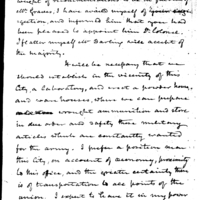 Mr Grases. I have availed myself of
gestion, and informed him that you had
been pleased to appoint him Lt Colonel.
I flatter myself Mr Darling will accept of
the majority.
It will be necessary that we
should establish in the vicinity of this
city, a Laboratory, and erect a powder house,
and ware houses, where we can prepare
wrought ammunition and store
in due order and safety those military
articles which are constantly wanted
for the army. I prefer a position near
this City, on account of economy, proximity
to this office, and the greater certainty there
is of transportation to all points of the
union. I expect to have it in my power